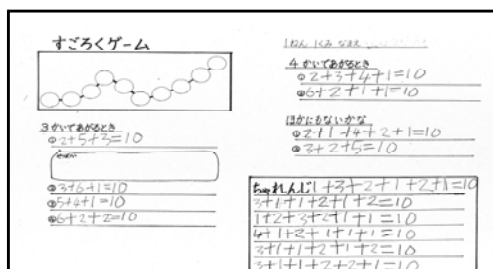 すごろくゲーム
3かいであがるとき
①2+5+3=10
せつめい
②3+6+1=10
③5+4+1=10
④6+2+2=10
1ねん 1くみ なまえ
4かいであがるとき
①2+3+4+1=10
②6+2+1+1=10
ほかにもないかな
①2+1+4+2+1=10
②3+2+5=10
ちゃれんじ1+3+2+1+2+1=10
3+1+1+2+1+2=10
1+2+3+2+1+1=10
4+1+2+1+1+1=10
3+1+1+2+1+2=10
3+1+1+2+2+1=10